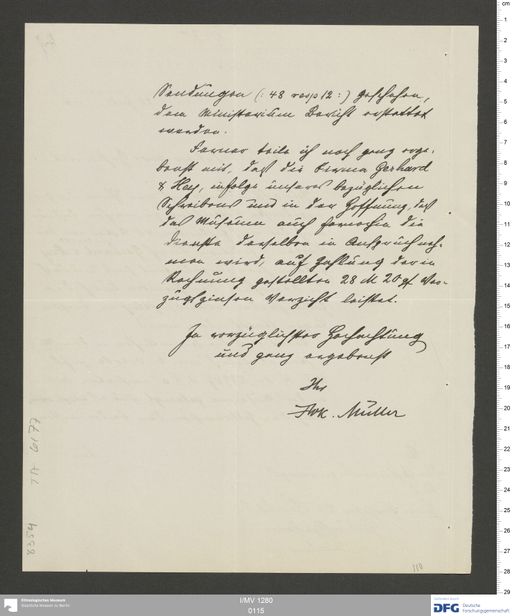 Sendungen (: 48 resp. 12 :) geschehen,
dem Ministerium Bericht erstattet
werden.
Ferner teile ich noch ganz erge-
benst mit, daß die Firma Gerhard
& Hey, infolge unseres bezüglichen
Schreibens und in der Hoffnung, daß
das Museum auch fernerhin die
Dienste derselben in Anspruch neh-
men wird, auf Zahlung der in
Rechnung gestellten 28 M 20 pf Ver-
zugszinsen Verzicht leistet.
In vorzüglichster Hochachtung
und ganz ergebenst
Ihr
FWK. Müller
8354
6177
110
Ethnologisches Museum
Staatliche Museen zu Berlin
I/MV 1280
0115
DFG Deutsche
Forschungsgemeinschaft
cm
1
2
3
4
5
6
7
8
9
10
11
12
13
14
15
16
17
18
19
20
21
22
23
24
25
26
27
28
29